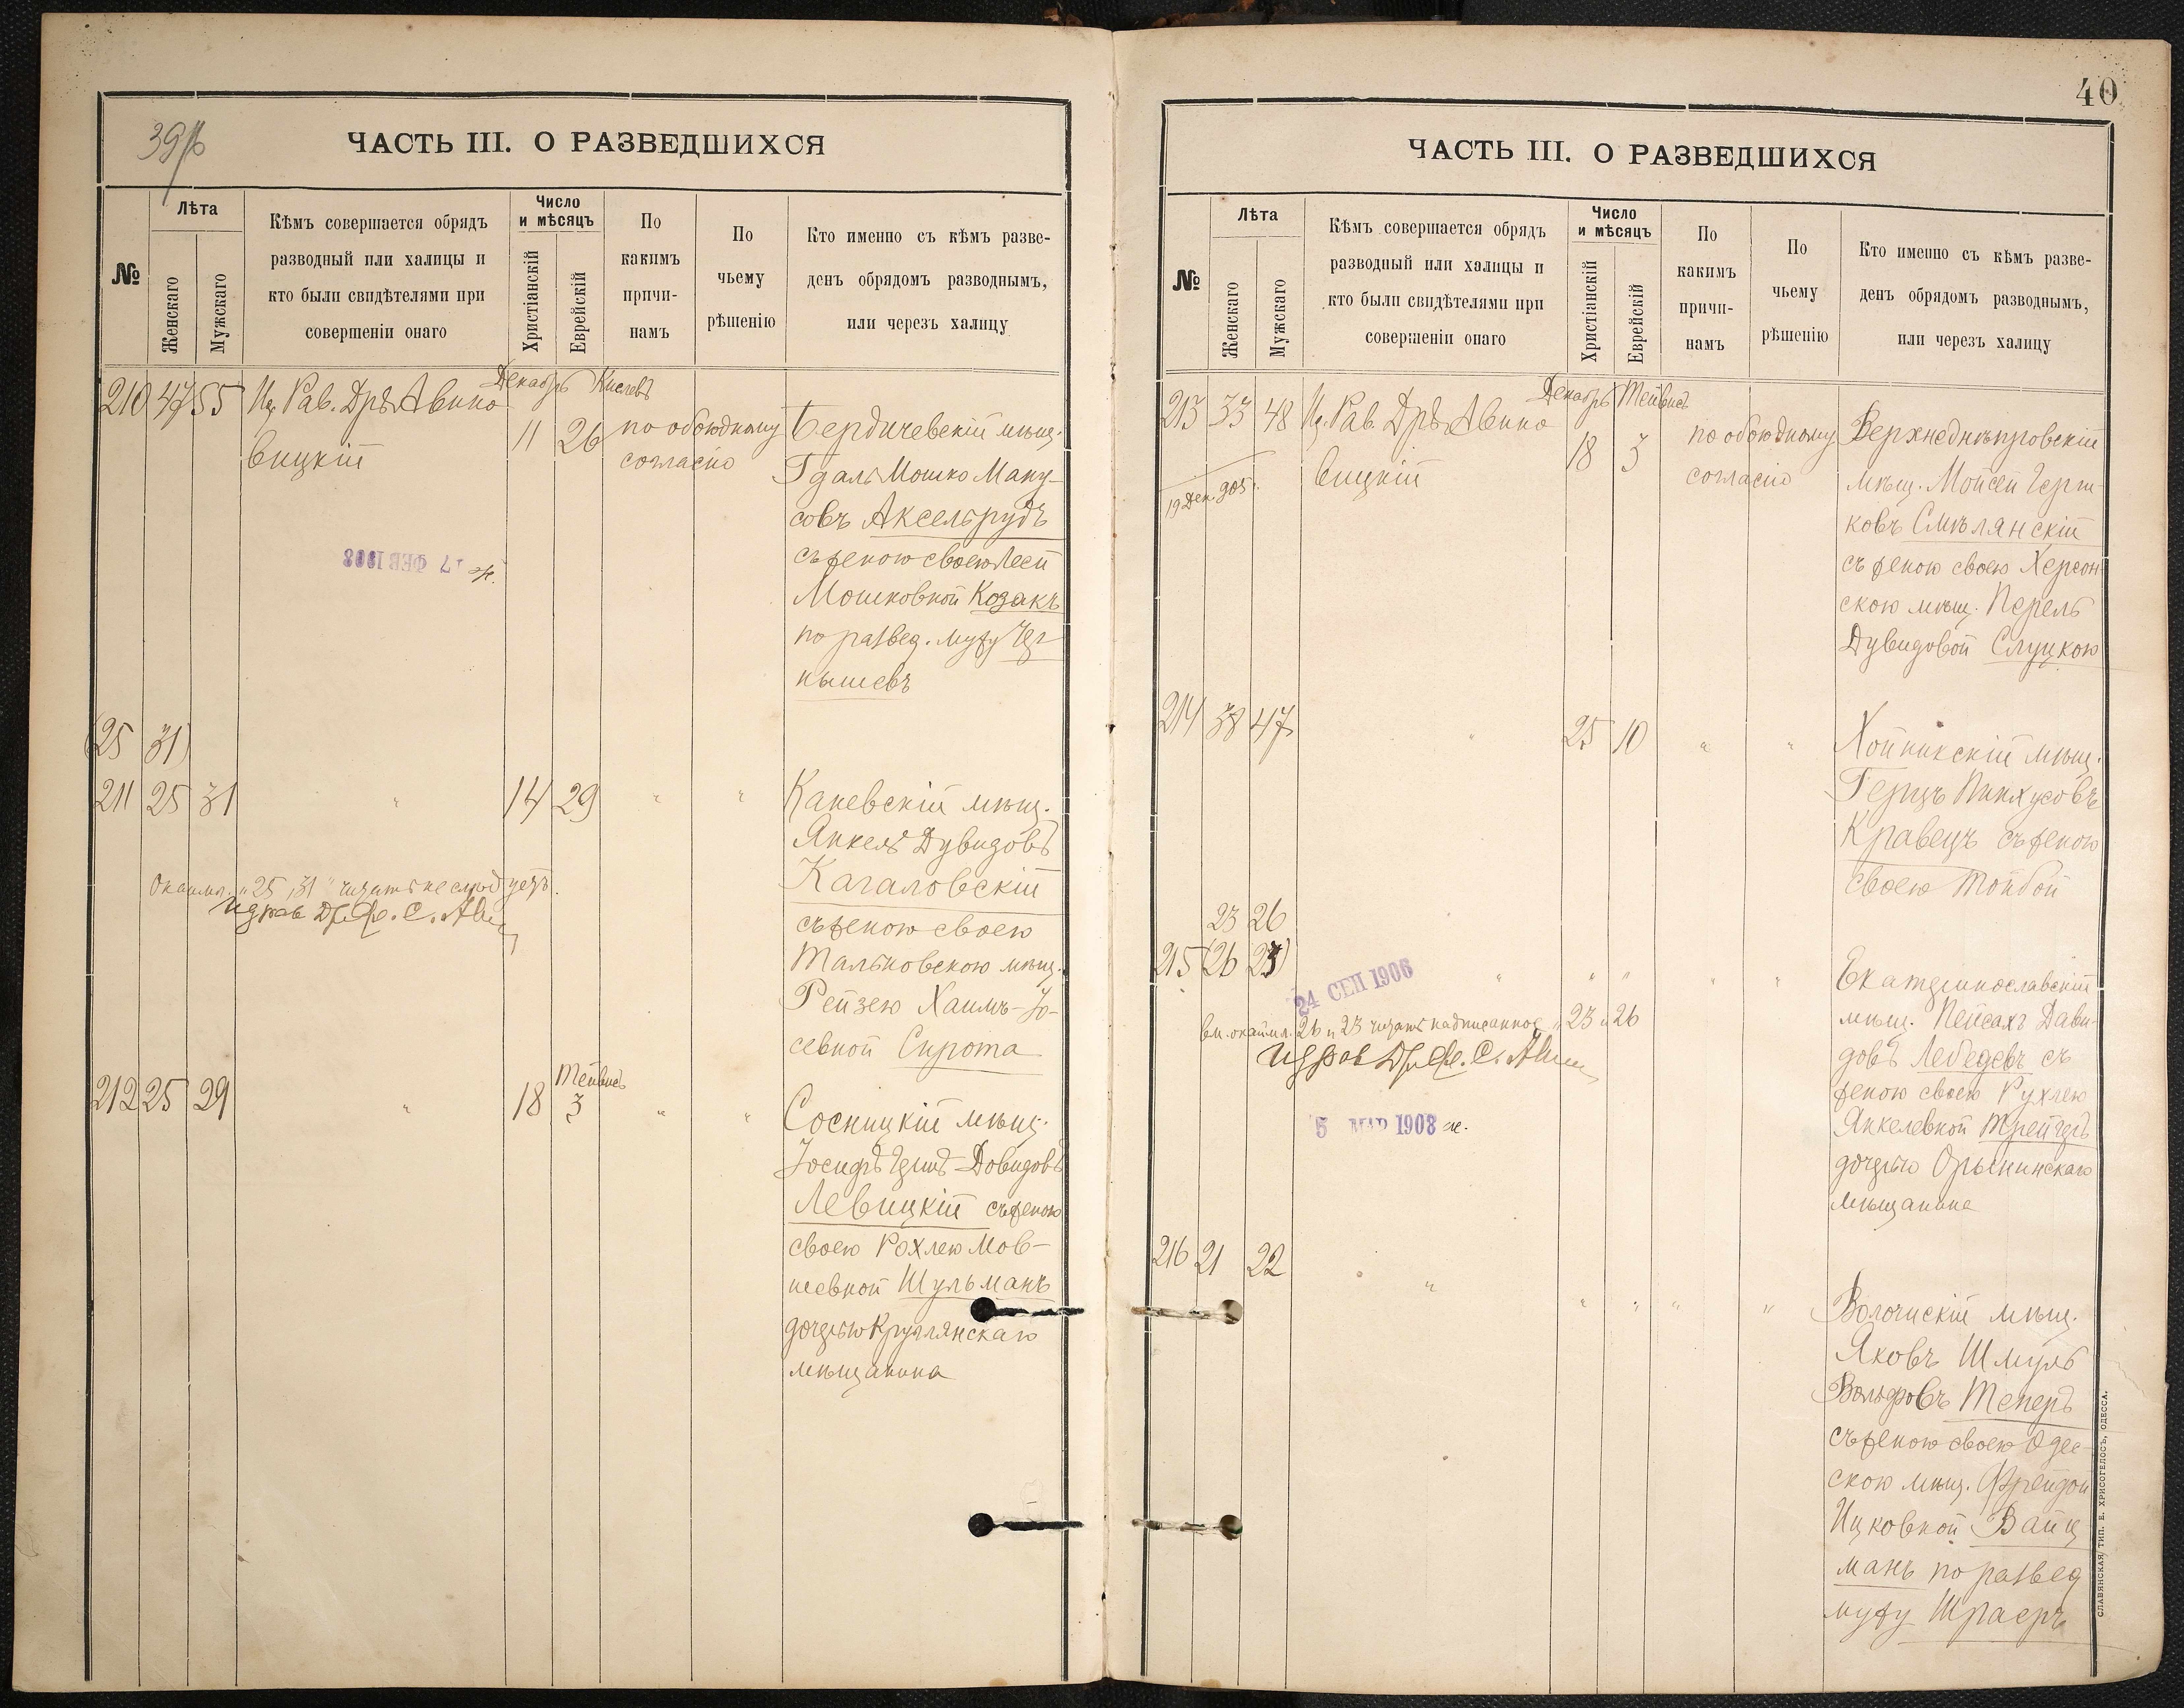 39 об
ЧАСТЬ III. О РАЗВЕДШИХСЯ
№
Лѣта
Женскаго
Мужскаго
Кѣмъ совершается обрядъ
разводный или халицы и
кто были свидѣтелями при
совершеніи онаго
Число
и мѣсяцъ
Христіанскій
Еврейскій
По
какимъ
причи-
намъ
По
чьему
рѣшенію
Кто именно съ кѣмъ разве-
денъ обрядомъ разводнымъ,
или черезъ халицу
Декабрь Кислевъ
210 47 55 И. Рав. Дръ Авино
вицкій
11 26 по обоюдному
согласію
Бердичевскій мѣщ.
Гдаль Мошко Ману-
совъ Аксельрудъ
съ женою своею Лесей
Мошковной Козакъ
по развед. мужу Чер-
нышевъ
17 ФЕВ 1908
(25 31)
211 25 31 " 14 29 " "
Каневскій мѣщ.
Янкель Дувидовъ
Кагаловскій
съ женою своею
Тальновскою мѣщ.
Рейзею Хаимъ-Іо-
севной Сирота
Окаймл. "25, 31" читать не слѣдуетъ.
И д рав Др. С. Ави
212 25 29 " 18 Тейвисъ 3 " "
Сосницкій мѣщ.
Іосифъ Гершъ-Довидовъ
Левицкій съ женою
своею Рохлею Мов-
шевной Шульманъ
дочерью Круглянскаго
мѣщанина
40
ЧАСТЬ III. О РАЗВЕДШИХСЯ
№
Лѣта
Женскаго
Мужскаго
Кѣмъ совершается обрядъ
разводный или халицы и
кто были свидѣтелями при
совершеніи онаго
Число
и мѣсяцъ
Христіанскій
Еврейскій
По
какимъ
причи-
намъ
По
чьему
рѣшенію
Кто именно съ кѣмъ разве-
денъ обрядомъ разводнымъ,
или черезъ халицу
Декабрь Тейвисъ
213 33 48 И. Рав. Дръ Авино
вицкій
18 3 по обоюдному
согласію
19 Дек. 905 г.
Верхнеднѣпровскій
мѣщ. Мойсей Герш-
ковъ Смѣлянскій
съ женою своею Херсон-
скою мѣщ. Перель
Дувидовой Слуцкою
214 38 47 " 25 10 " "
Хойникскій мѣщ.
Герцъ Пинхусовъ
Кравецъ съ женою
своею Тойбой
23 26
215 (26 23) " " " " "
Екатеринославскій
мѣщ. Пейсахъ Дави-
довъ Лебедевъ съ
женою своею Рухлею
Янкелевной Трейгеръ
дочерью Орынинскаго
мѣщанина
24 СЕП 1906
вм. окаймл. 26 и 23 читать надписанное "23 и 26
И д рав Др. С. Ави
5 МАР 1908
216 21 22 " " " " "
Волочискій мѣщ.
Яковъ Шмуль
Вольфовъ Теперъ
съ женою своею Одес-
скою мѣщ. Фрейдой
Ицковной Вайц
манъ по развед
мужу Шраеръ
СЛАВЯНСКАЯ ТИП. Е. ХРИСОГЕЛОСЪ, ОДЕССА.